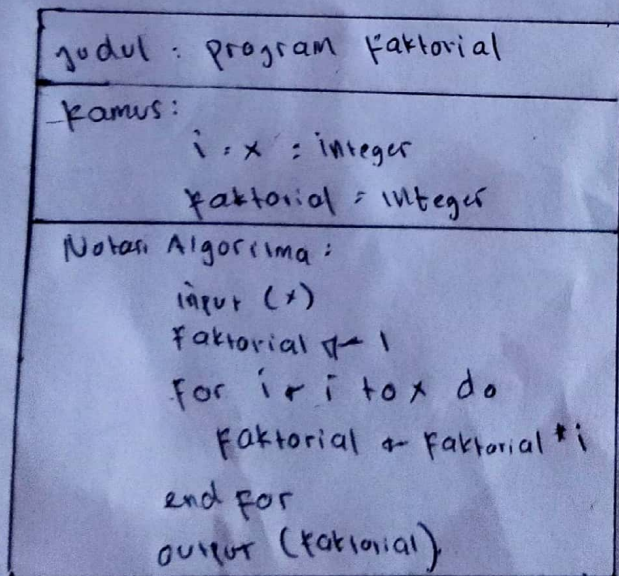 Judul : program Faktorial
Kamus :
i, x : integer
Faktorial : integer
Notasi Algoritma :
input (x)
Faktorial ← 1
For i ← i to x do
Faktorial ← Faktorial * i
end for
output (Faktorial)